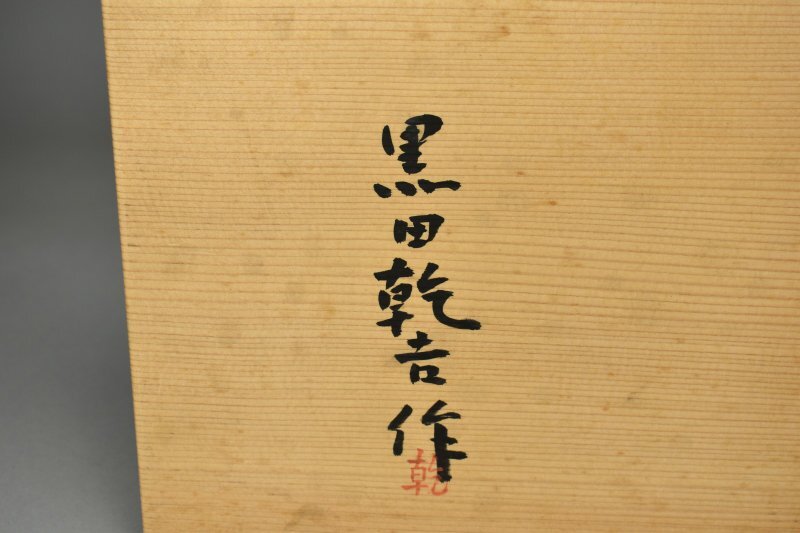 黒田乾吉作
乾